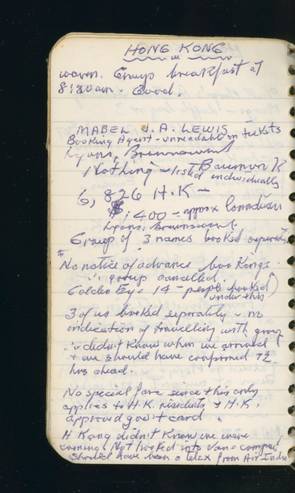 HONG KONG
warm. Group breakfast at
8:30am. Good.
MABEL J. A. LEWIS
Booking Agent - unreadable on tickets
Lyons,
Nothing - listed individually
6,826 H.K -
$1400 - approx Canadian
Lyons,
Group of 3 names booked separately
No notice of advance bookings
∴ group cancelled
14 - people booked
under this
3 of us booked separately - no
indication of travelling with group
∴ didn't know when we arrived
+ we should have confirmed 72
hrs ahead.
No special fare since this only
applies to H.K. residents + H.K.
approved gov't card.
H Kong didn't know we were
coming. Not booked into
should have been a telex from Air India